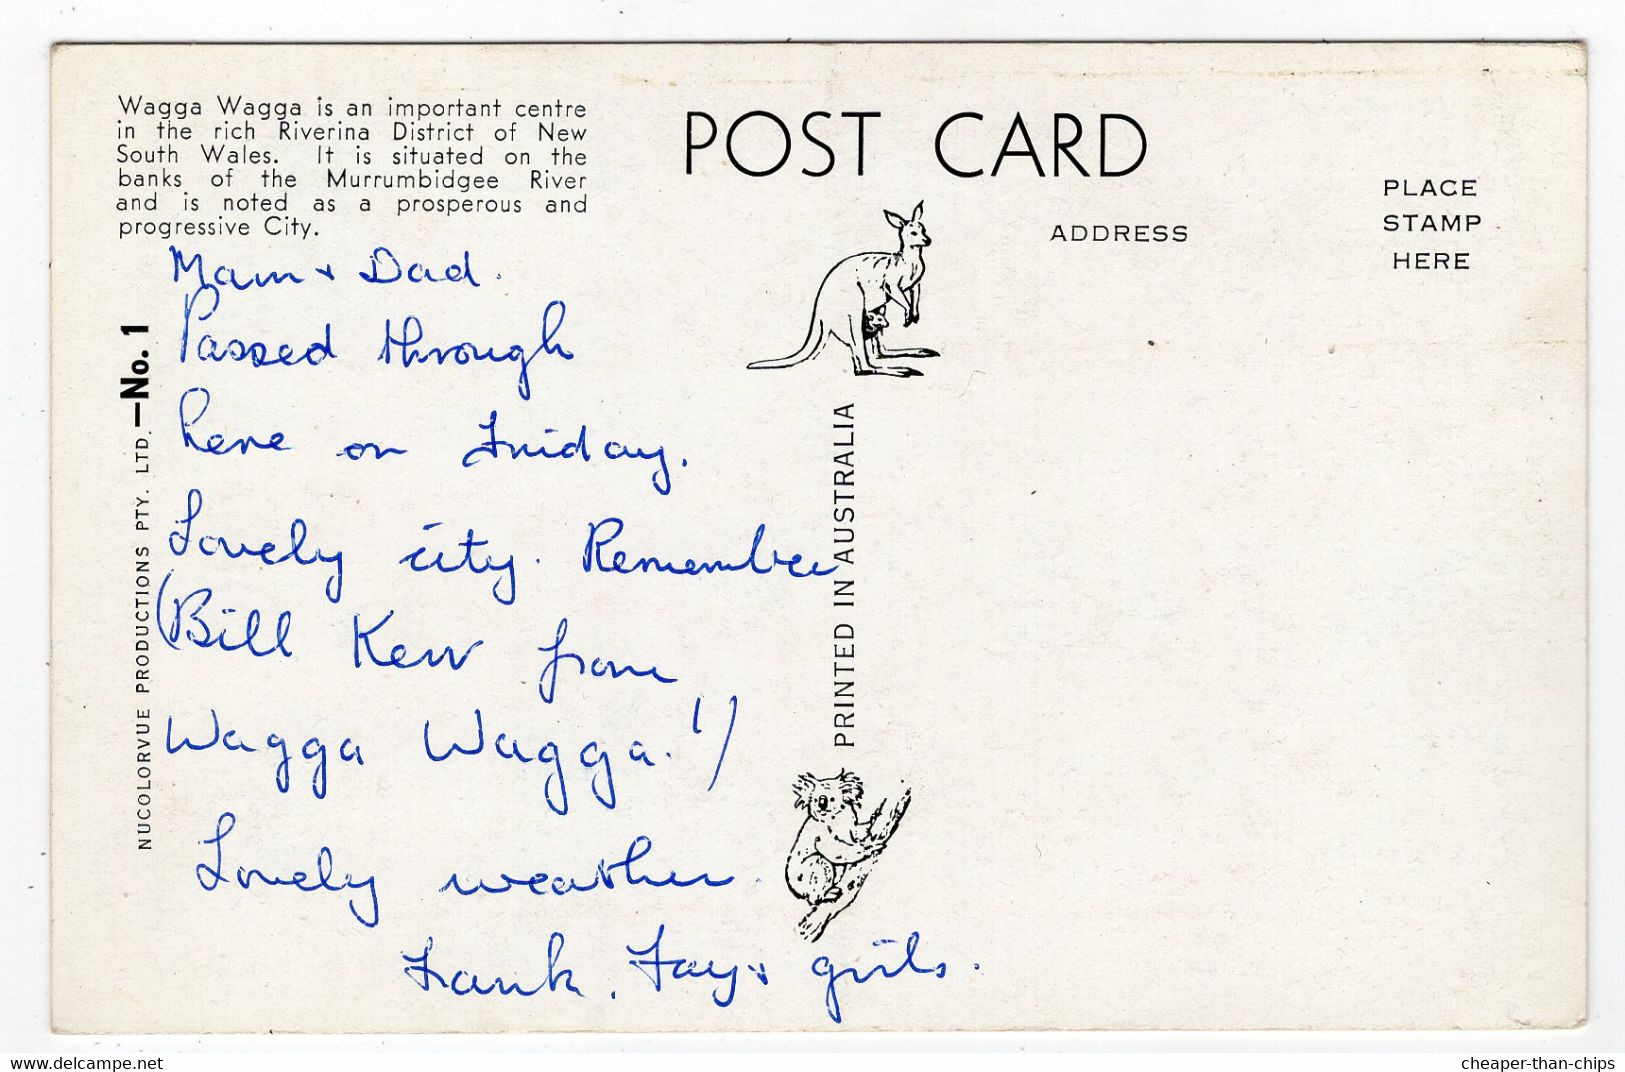 Wagga Wagga is an important centre
in the rich Riverina District of New
South Wales. It is situated on the
banks of the Murrumbidgee River
and is noted as a prosperous and
progressive City.
NUCOLORVUE PRODUCTIONS PTY. LTD. —No. 1
Mam + Dad.
Passed through
here on Friday.
Lovely city. Remember
(Bill Kerr from
Wagga Wagga.!)
Lovely weather.
Frank, Fay + girls.
POST CARD
PRINTED IN AUSTRALIA
ADDRESS
PLACE
STAMP
HERE
www.delcampe.net
cheaper-than-chips